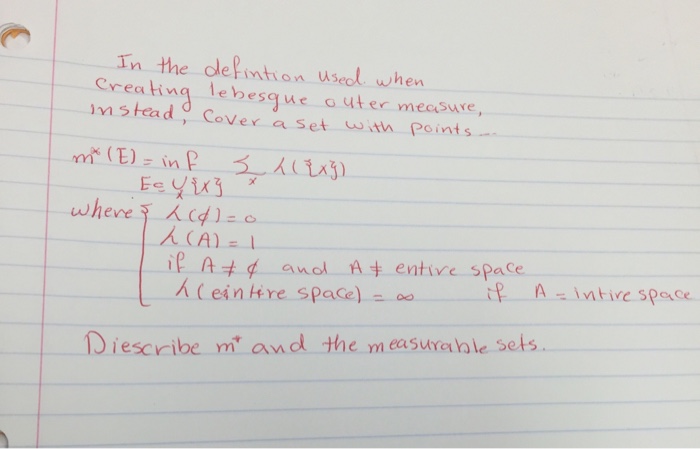 In the defintion used when
creating lebesgue outer measure,
instead, Cover a set with points...
m*(E) = inf Σ λ({x})
E⊆∪{x} x
x
where { λ(ϕ) = 0
λ(A) = 1
if A ≠ ϕ and A ≠ entire space
λ(eintire space) = ∞ if A = intire space
Diescribe m* and the measurable sets.